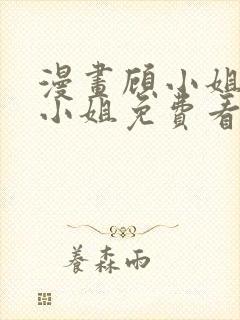 漫畫顾小姐
小姐免費看
養森雨